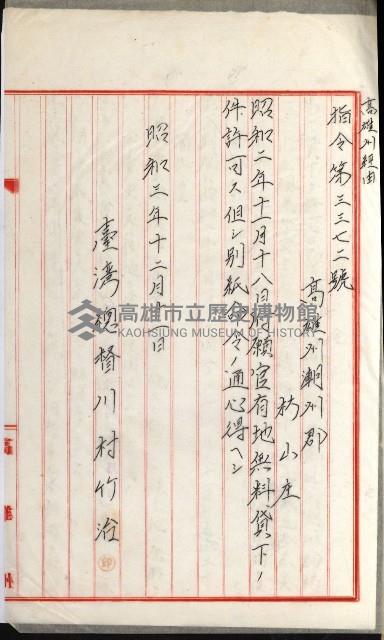 高雄州經由
指令第三三七二號
高雄州潮州郡
枋山庄
昭和二年十一月十八日附願官有地無料貸下ノ
件許可ス但シ別紙命令ノ通心得ヘシ
昭和三年十二月 日
臺灣總督川村竹治
印
高雄州
高雄市立歷史博物館
KAOHSIUNG MUSEUM OF HISTORY